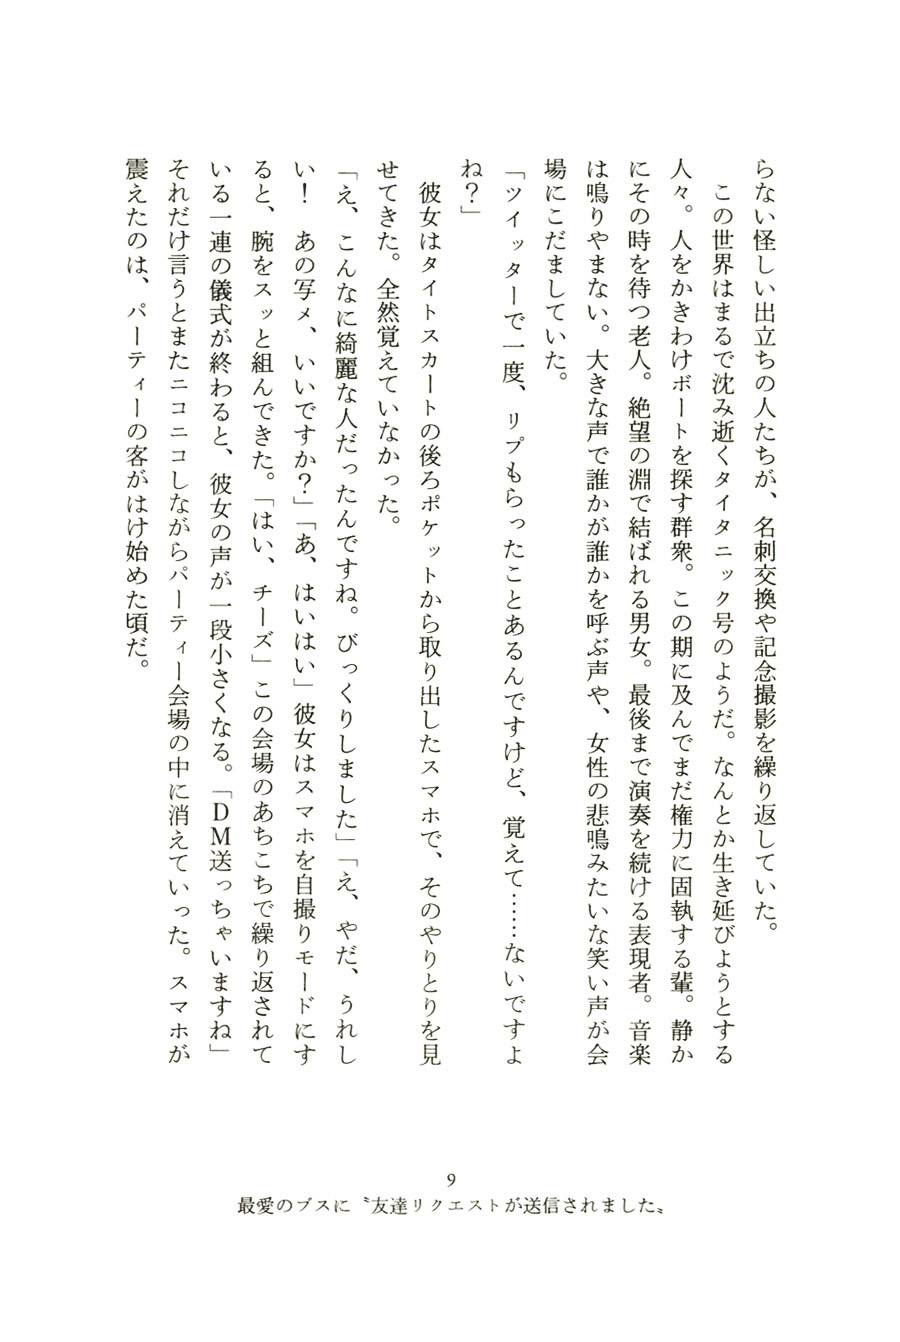 らない怪しい出立ちの人たちが、名刺交換や記念撮影を繰り返していた。
　この世界はまるで沈み逝くタイタニック号のようだ。なんとか生き延びようとする
人々。人をかきわけボートを探す群衆。この期に及んでまだ権力に固執する輩。静か
にその時を待つ老人。絶望の淵で結ばれる男女。最後まで演奏を続ける表現者。音楽
は鳴りやまない。大きな声で誰かが誰かを呼ぶ声や、女性の悲鳴みたいな笑い声が会
場にこだましていた。
「ツイッターで一度、リプもらったことあるんですけど、覚えて……ないですよ
ね？」
　彼女はタイトスカートの後ろポケットから取り出したスマホで、そのやりとりを見
せてきた。全然覚えていなかった。
「え、こんなに綺麗な人だったんですね。びっくりしました」「え、やだ、うれし
い！　あの写メ、いいですか？」「あ、はいはい」彼女はスマホを自撮りモードにす
ると、腕をスッと組んできた。「はい、チーズ」この会場のあちこちで繰り返されて
いる一連の儀式が終わると、彼女の声が一段小さくなる。「DM送っちゃいますね」
それだけ言うとまたニコニコしながらパーティー会場の中に消えていった。スマホが
震えたのは、パーティーの客がはけ始めた頃だ。
9
最愛のブスに〝友達リクエストが送信されました〟